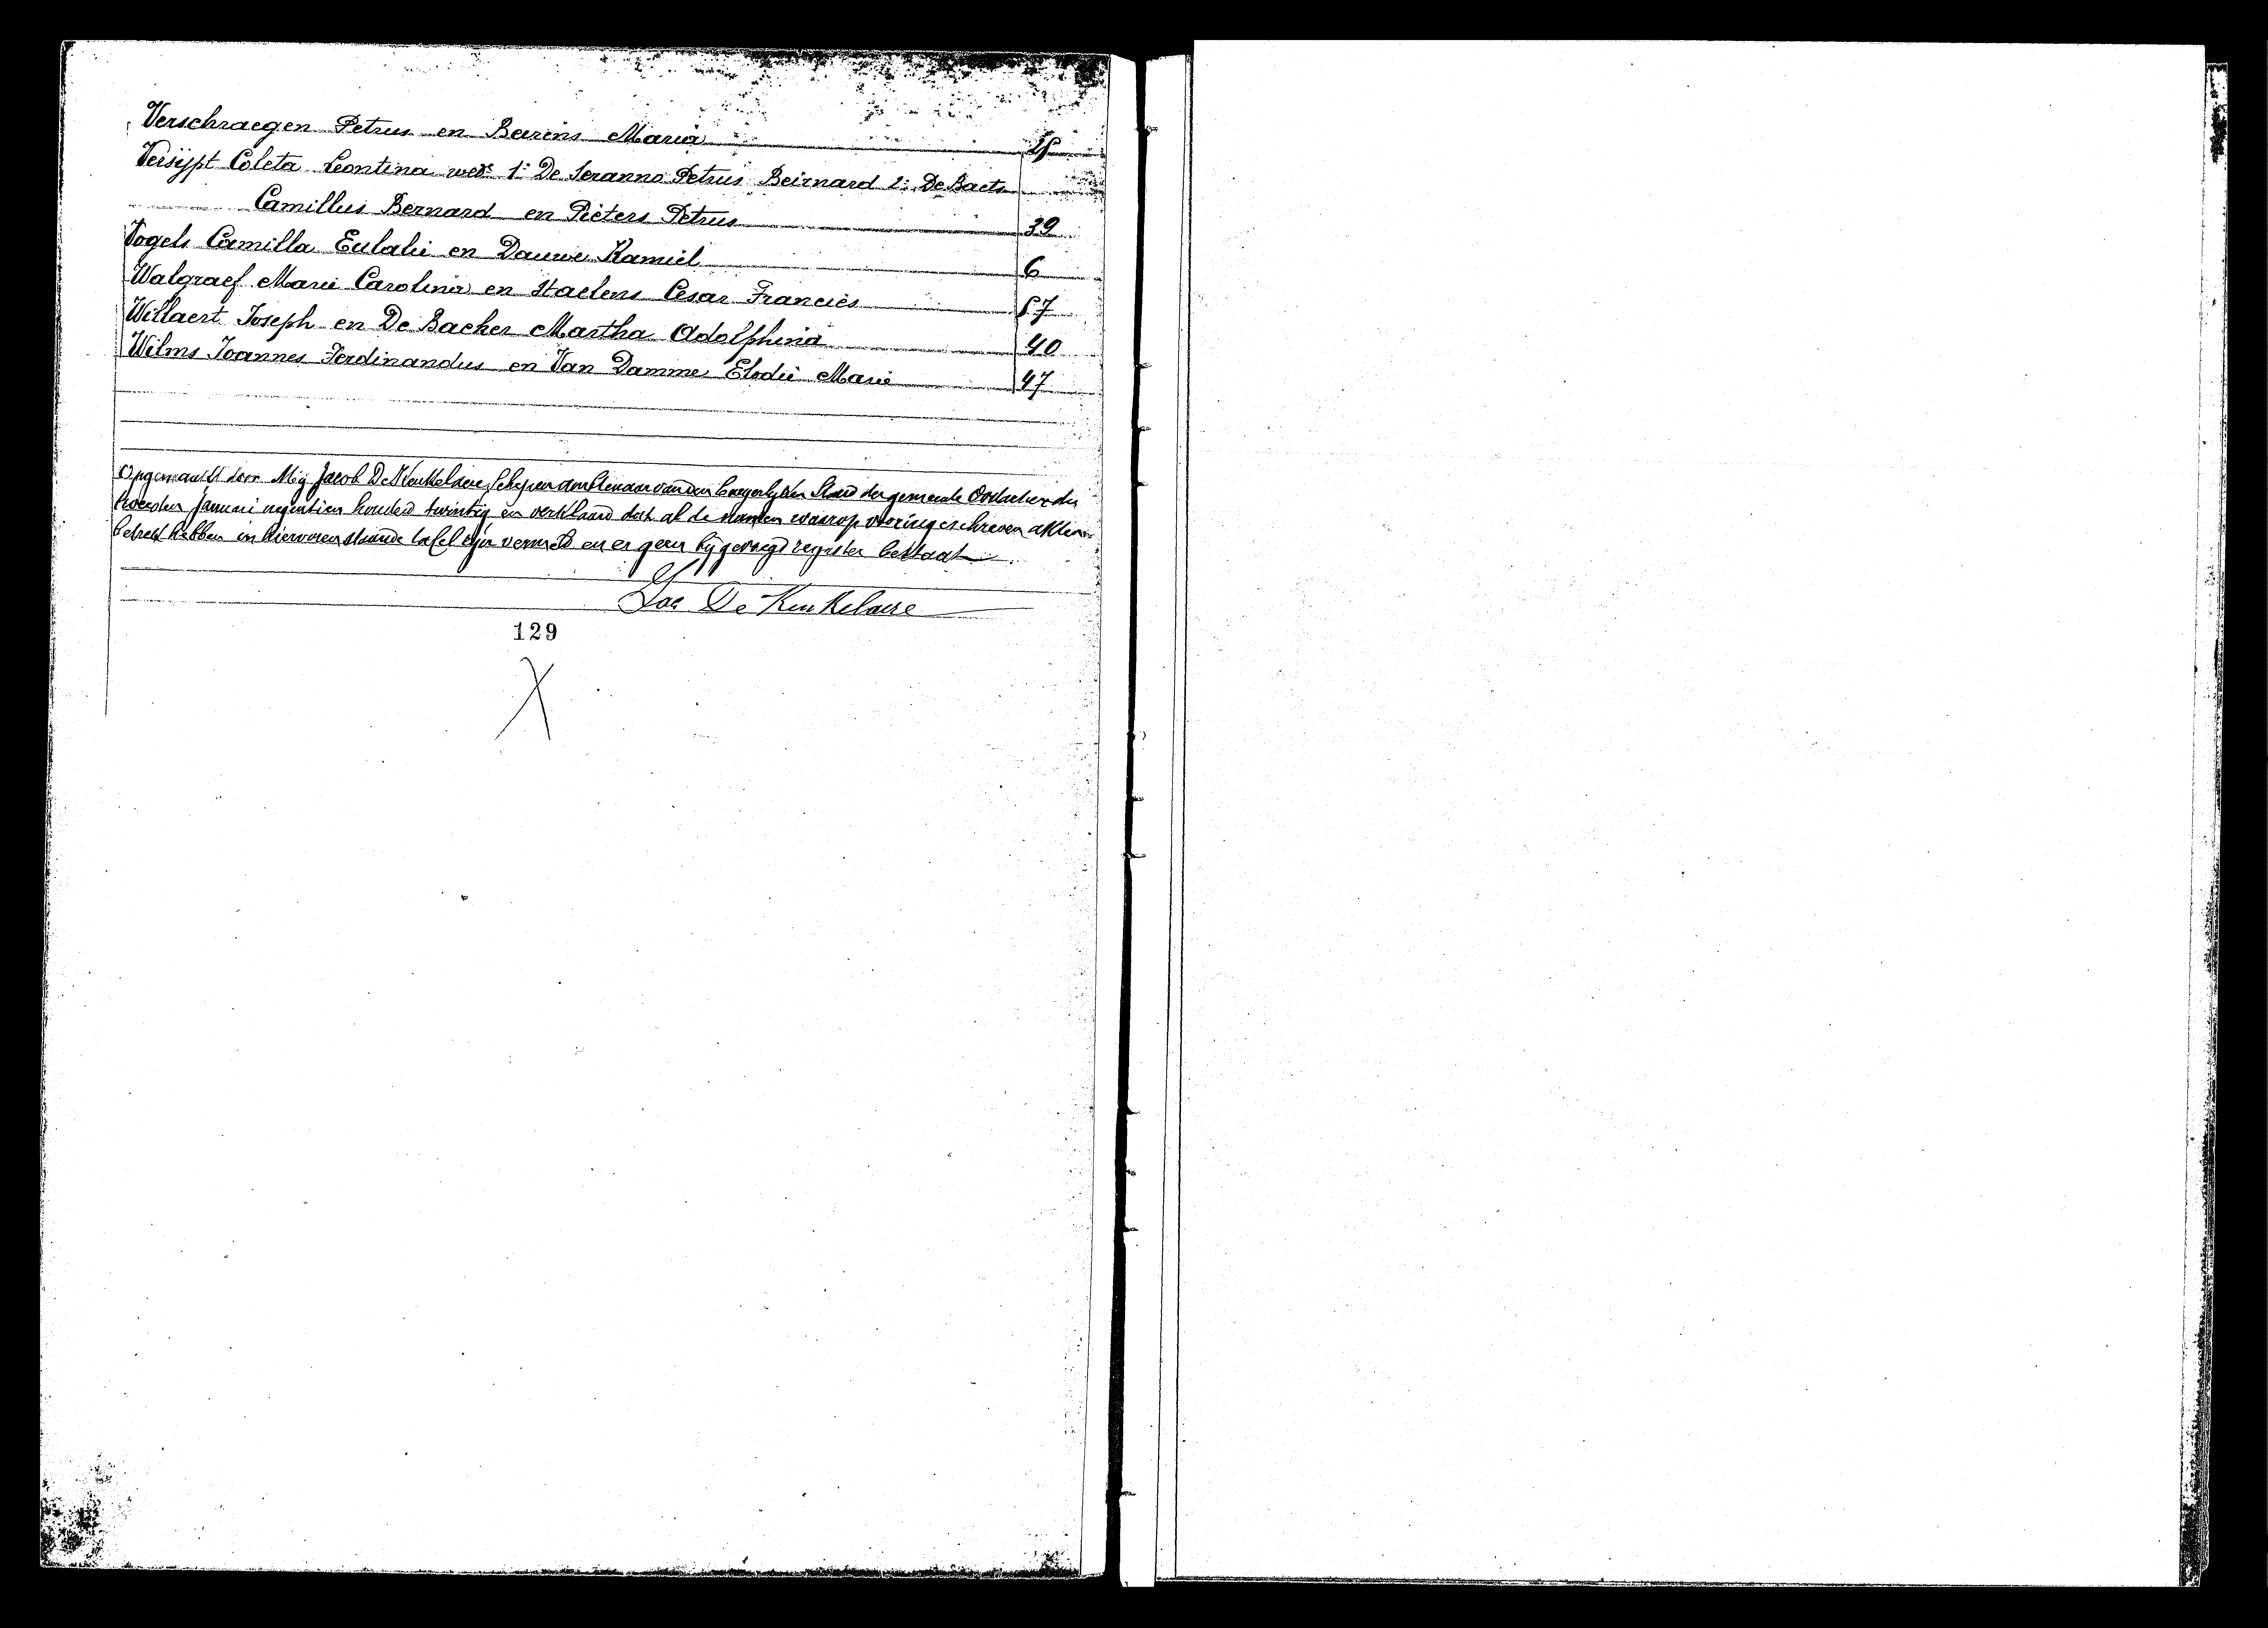 Verschraegen Petrus en Barens Maria
Versijpt Coleta Leontina wed. 1: De Seranno Petrus Beirnard 2: De Baets
Camillus Bernard en Pieters Petrus 39
Vogels Camilla Eulalie en Dauwe Kamiel 6
Walgraef Marie Carolina en Staelens Cesar Francies 57
Willaert Joseph en De Backer Martha Adolphina 40
Wilms Joannes Ferdinandus en Van Damme Elodie Marie 47
Opgemaakt door Mij Jacob De Keukelaere, Schepen ambtenaar van den burgerlijken Stand der gemeente Oostacker den
tweesten Januari negentien honderd twintig en verklaard dat al de namen waarop vooringeschreven akten
betrek hebben in hiervorenstaande tafel zijn vermeld en er geen bijgevoegd register bestaat.
Jac De Keukelaere
129
X